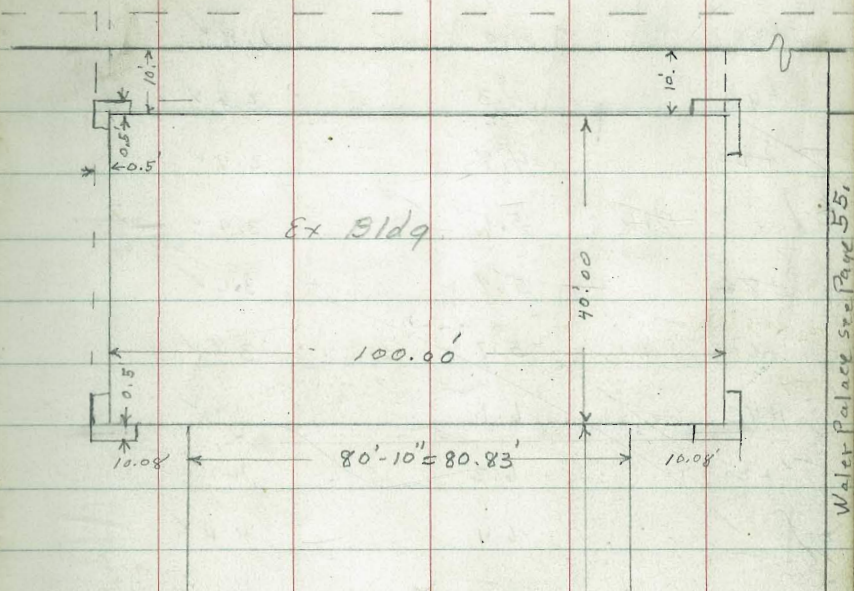 10'.
10'.
0.5'
0.5'
Ex Bldg
40'.00
100.00'
0.5'
10.08'
80'-10"=80.83'
10.08'
Water Palace see Page 55.